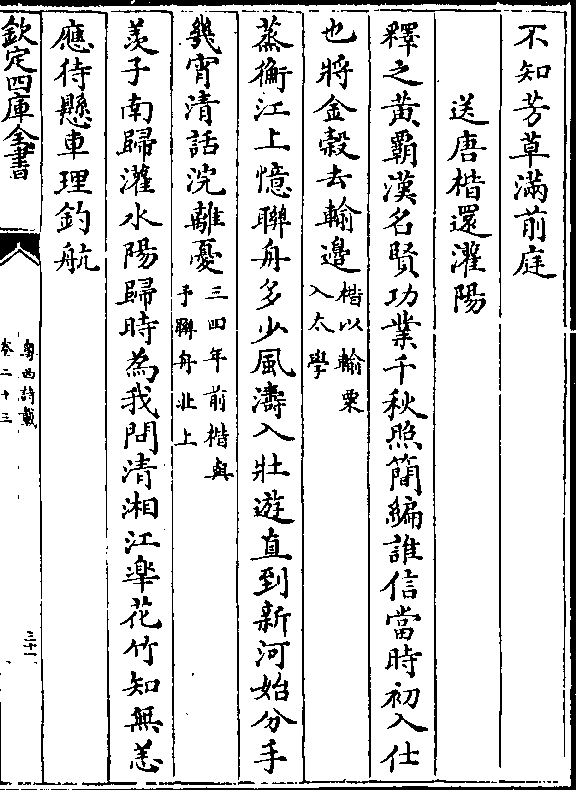 不知芳草滿前庭
送唐楷還灌陽
釋之黃霸漢名賢功業千秋照簡編誰信當時初入仕
也將金穀去輸邊楷以輸粟
入太學
蒸衡江上憶聯舟多少風濤入壯遊直到新河始分手
幾宵清話浣離憂三四年前楷與
予聯舟北上
羨子南歸灌水陽歸時為我問清湘江臯花竹知無恙
應待懸車理釣航
欽定四庫全書
粵西詩載
卷二十三
三十一